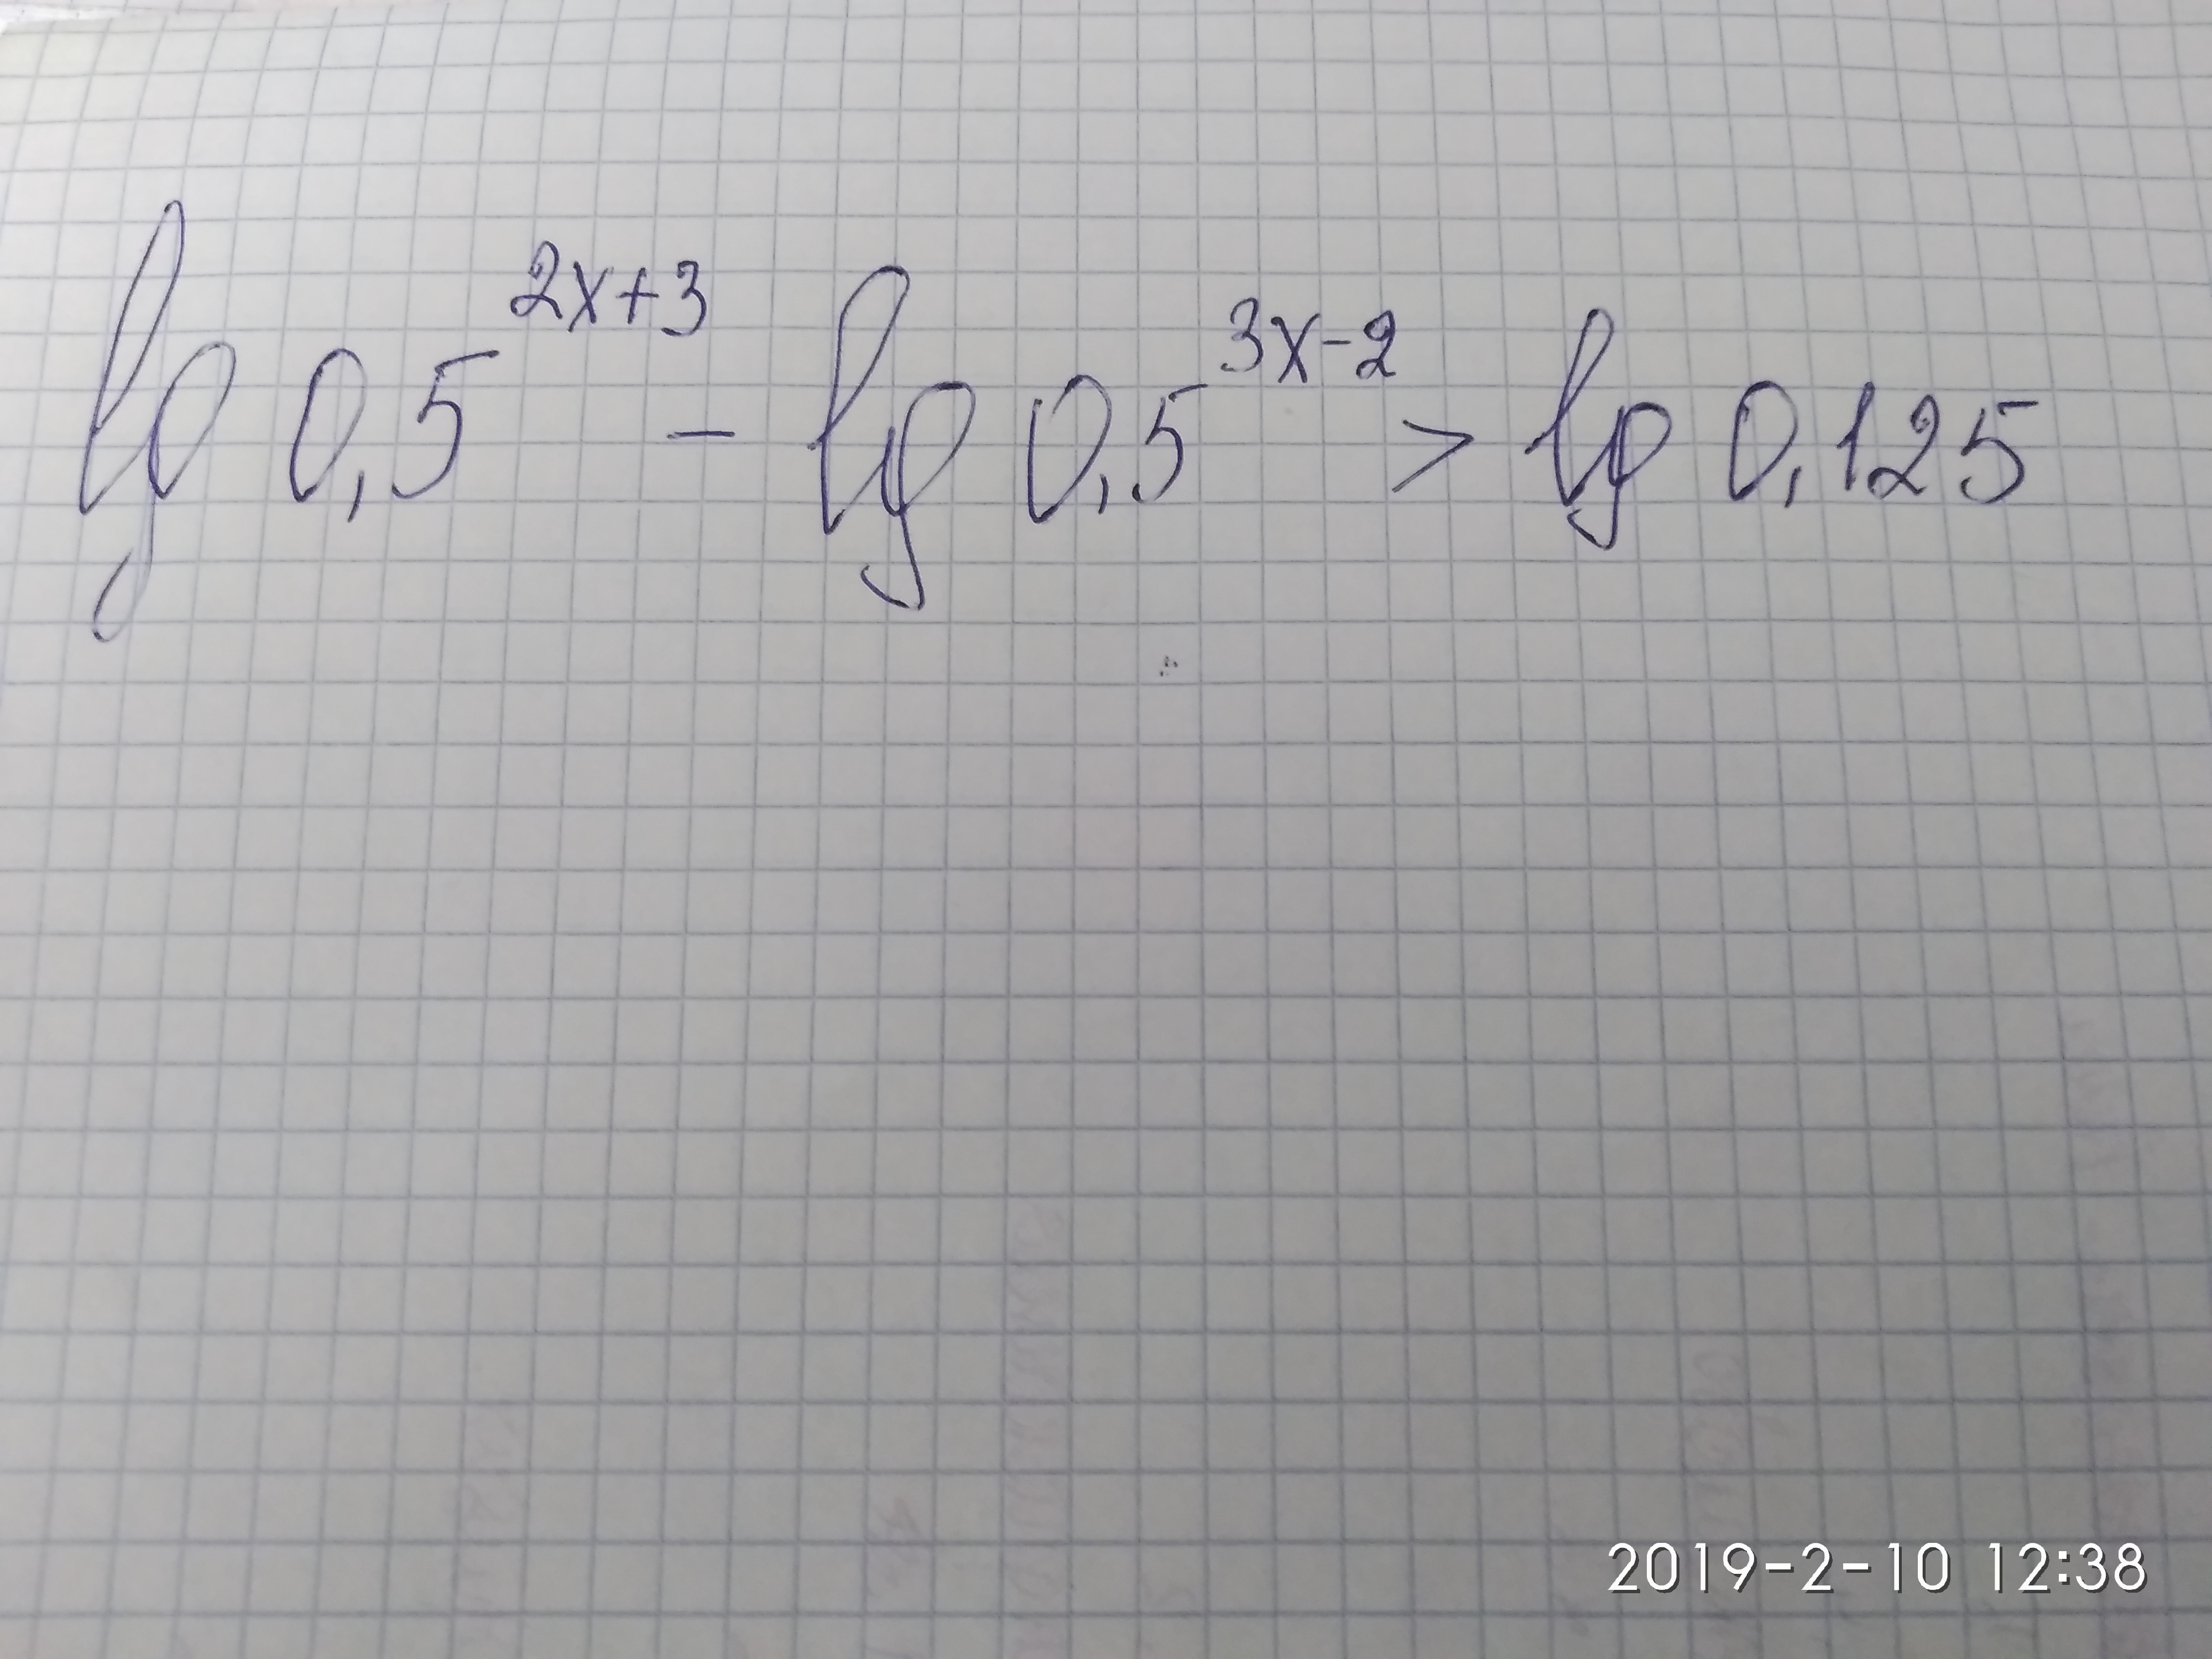 lg 0,5^{2x+3} - lg 0,5^{3x-2} > lg 0,125
2019-2-10 12:38